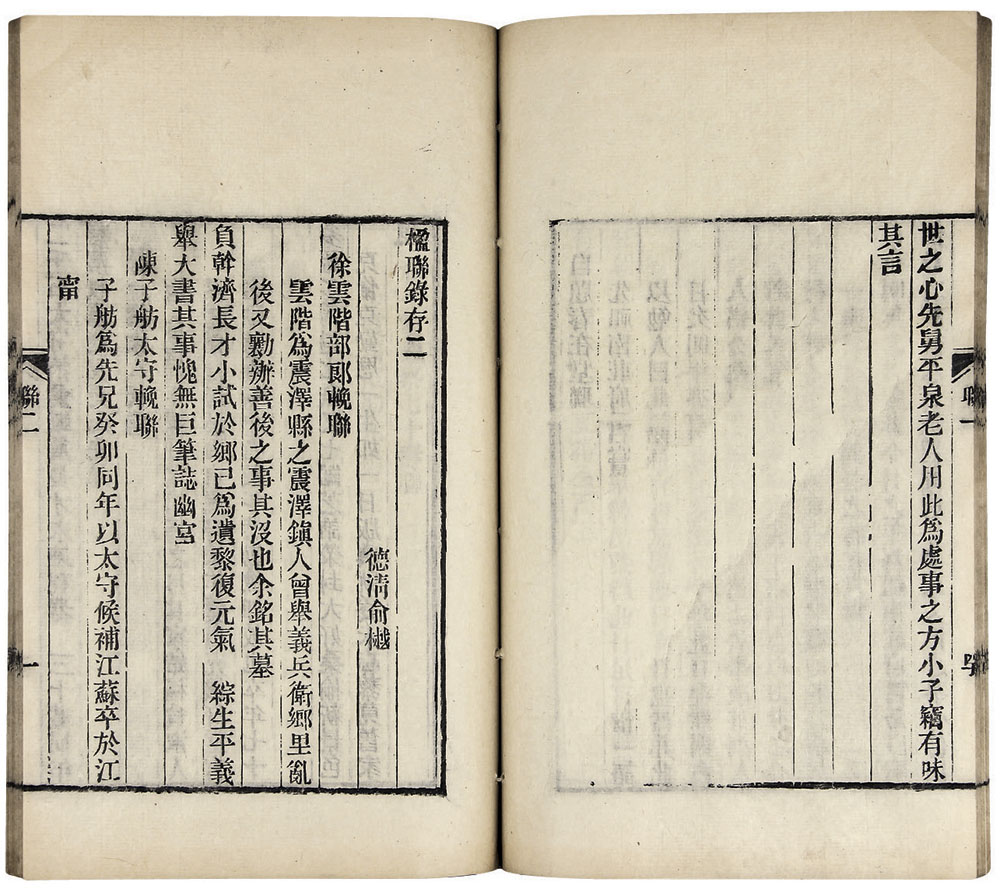 世之心先舅平泉老人用此爲處事之方小子竊有味
其言
聯一
楹聯錄存二
德清俞樾
徐雲階部郎輓聯
雲階爲震澤縣之震澤鎮人曾舉義兵衛鄉里亂
後又勷辦善後之事其沒也余銘其墓
負幹濟長才小試於鄉已爲遺黎復元氣 綜生平義
舉大書其事愧無巨筆誌幽宮
陳子舫太守輓聯
子舫爲先兄癸卯同年以太守候補江蘇卒於江
甯
聯二
一